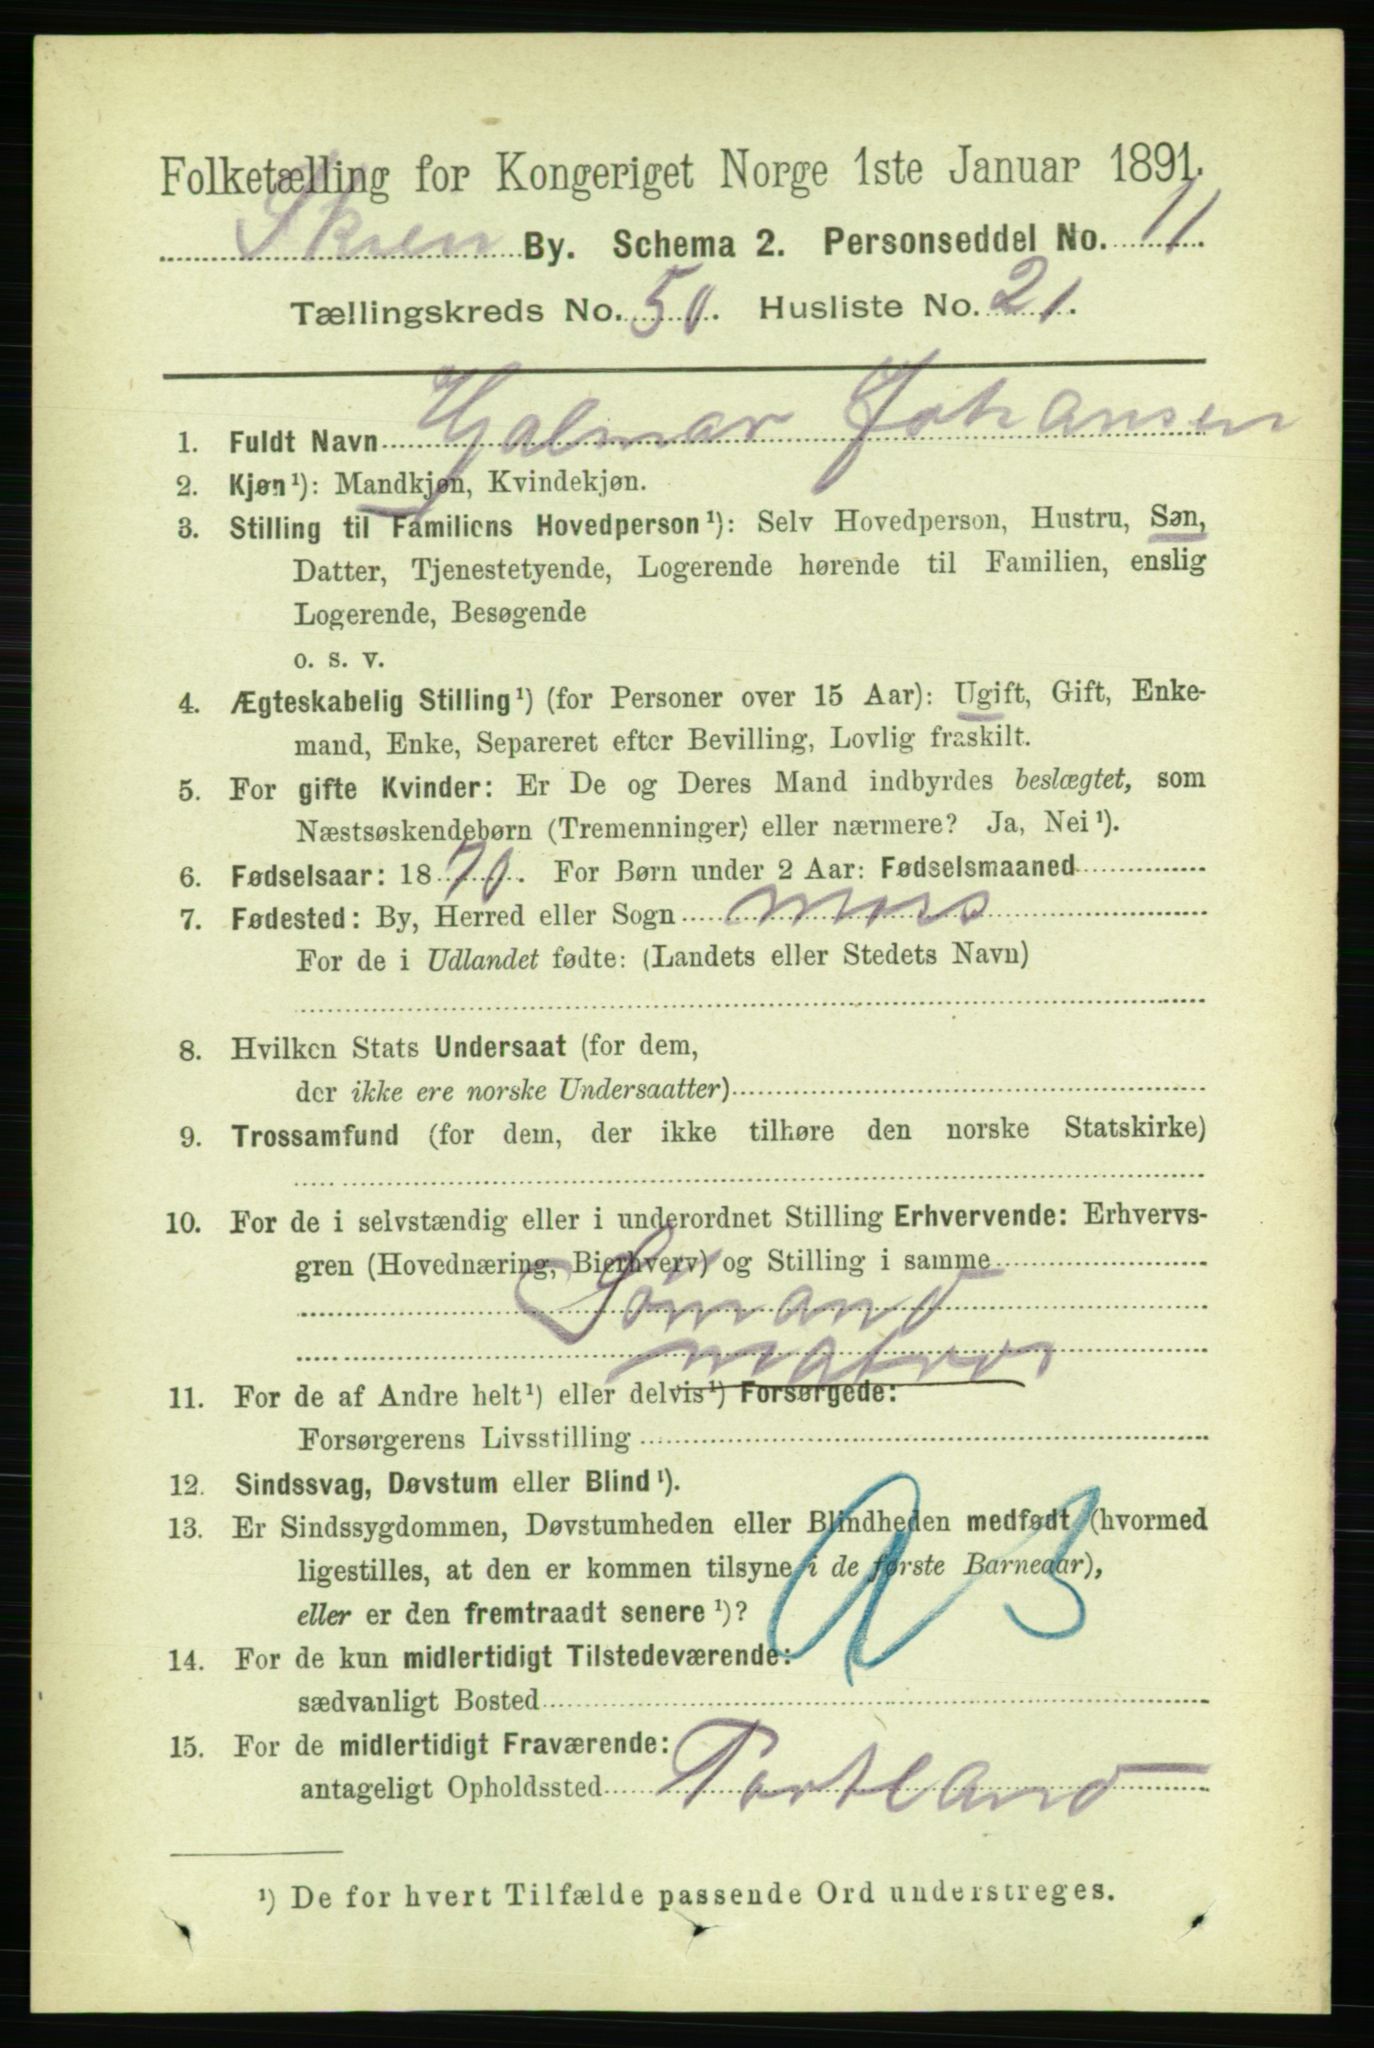 Folketælling for Kongeriget Norge 1ste Januar 1891.
Skien By. Schema 2. Personseddel No. 11
Tællingskreds No. 50. Husliste No. 21.
1. Fuldt Navn Hjalmar Johansen
2. Kjøn¹): Mandkjøn, Kvindekjøn.
3. Stilling til Familiens Hovedperson¹): Selv Hovedperson, Hustru, Søn,
Datter, Tjenestetyende, Logerende hørende til Familien, enslig
Logerende, Besøgende
o. s. v.
4. Ægteskabelig Stilling¹) (for Personer over 15 Aar): Ugift, Gift, Enke-
mand, Enke, Separeret efter Bevilling, Lovlig fraskilt.
5. For gifte Kvinder: Er De og Deres Mand indbyrdes beslægtet, som
Næstsøskendebørn (Tremenninger) eller nærmere? Ja, Nei¹).
6. Fødselsaar: 1870. For Børn under 2 Aar: Fødselsmaaned
7. Fødested: By, Herred eller Sogn
For de i Udlandet fødte: (Landets eller Stedets Navn)
8. Hvilken Stats Undersaat (for dem,
der ikke ere norske Undersaatter)
9. Trossamfund (for dem, der ikke tilhøre den norske Statskirke)
10. For de i selvstændig eller i underordnet Stilling Erhvervende: Erhvervs-
gren (Hovednæring, Bierhverv) og Stilling i samme
Sömand
matros
11. For de af Andre helt¹) eller delvis¹) Forsørgede:
Forsørgerens Livsstilling
12. Sindssvag, Døvstum eller Blind¹).
13. Er Sindssygdommen, Døvstumheden eller Blindheden medfødt (hvormed
ligestilles, at den er kommen tilsyne i de første Barneaar),
eller er den fremtraadt senere¹)?
14. For de kun midlertidigt Tilstedeværende:
sædvanligt Bosted
15. For de midlertidigt Fraværende:
antageligt Opholdssted Portland
¹) De for hvert Tilfælde passende Ord understreges.